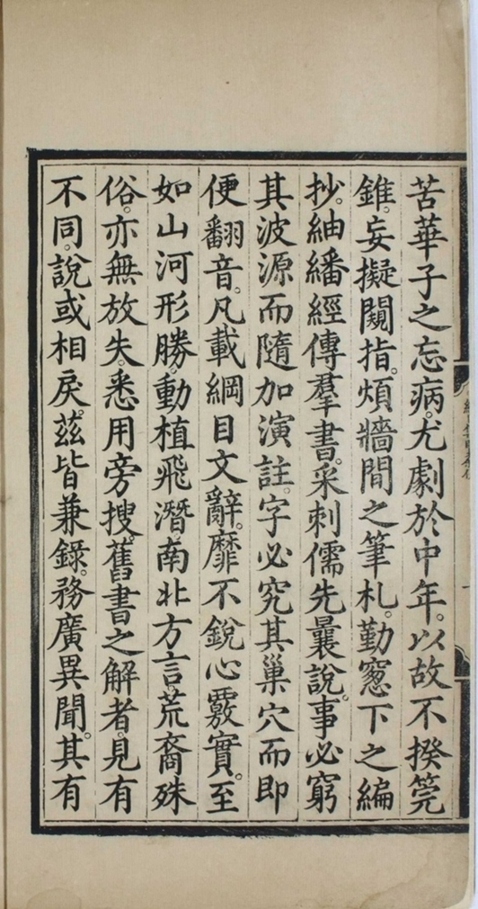 苦華子之忘病。尤劇於中年。以故不揆筦
錐。妄擬闚指。煩牆間之筆札。勤窓下之編
抄。紬繙經傳羣書。采刺儒先曩說。事必窮
其波源而隨加演註。字必究其巢穴而即
便翻音。凡載綱目文辭。靡不銳心覈實。至
如山河形勝。動植飛潛。南北方言。荒裔殊
俗。亦無放失。悉用旁搜。舊書之解者。見有
不同。說或相戾。玆皆兼錄。務廣異聞。其有